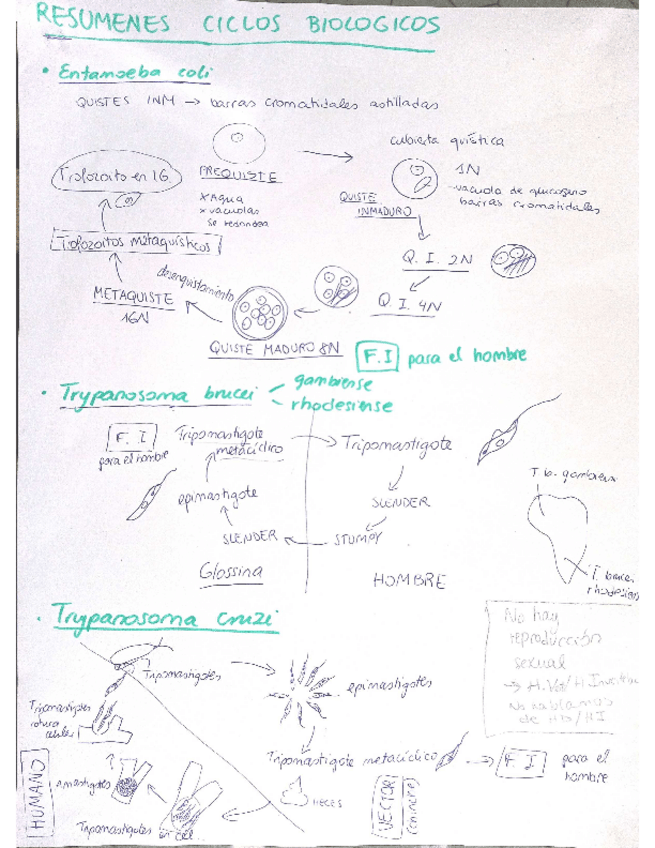 RESUMENES CICLOS BIOLOGICOS
• Entamoeba coli
QUISTES INM → barras cromatidales astilladas
PREQUISTE
x Agua
x vacuolas
se redondea
cubierta quística
QUISTE
INMADURO
1N
barras cromatidales
Q. I. 2N
Q. I. 4N
QUISTE MADURO 8N
F.I para el hombre
desenquistamiento
METAQUISTE
16N
Trofozoitos metaquísticos
Trofozoito en IG
• Trypanosoma brucei
gambiense
rhodesiense
F. I
para el hombre
Tripomastigote
metacíclico
epimastigote
SLENDER
Glossina
Tripomastigote
SLENDER
STUMPY
HOMBRE
T. b. gambiense
T. brucei
rhodesiens
• Trypanosoma cruzi
No hay
reproducción
sexual
No hablamos
de HD/HI
Tripomastigotes
epimastigotes
Tripomastigote metacíclico → F I para el
hombre
HECES
VECTOR
(chinche)
Tripomastigotes en cél
amastigotes
Tripomastigotes
rotura
celular
HUMANO